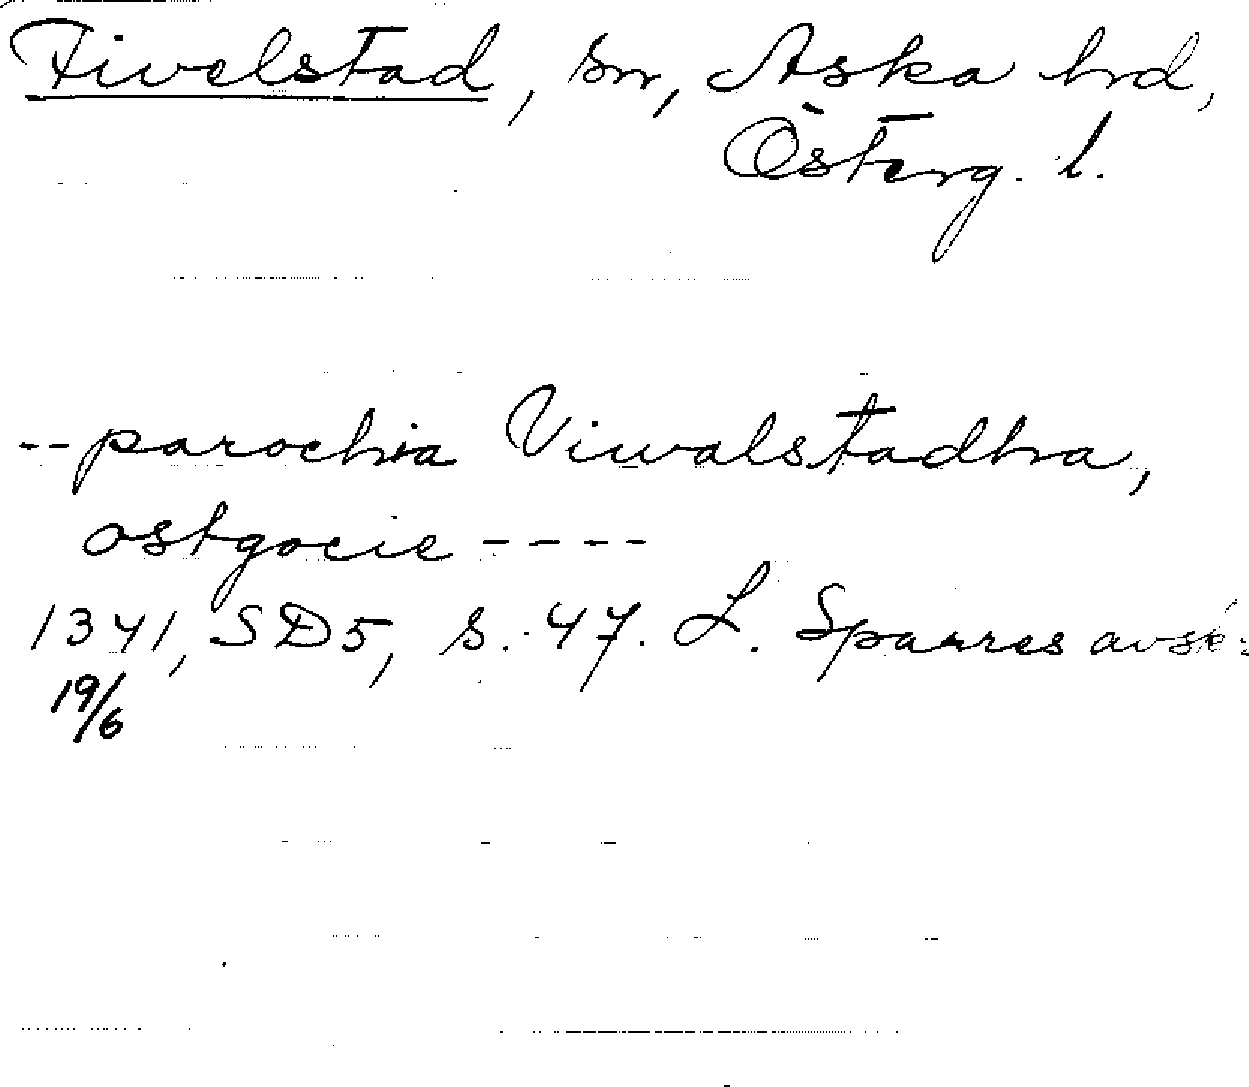 Fivelstad, sn, Aska hrd,
Österg. l.
-- parochia Viwalstadha,
ostgocie ----
1341, SD5, s. 47. L. Sparres avskr.
19/6